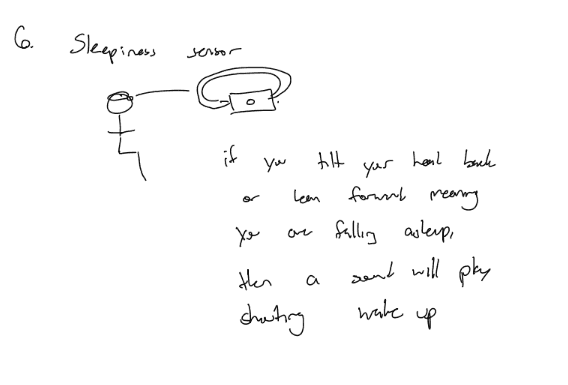 6. Sleepiness sensor
if you tilt your head back
or lean forward meaning
you are falling asleep,
then a sound will play
shouting wake up